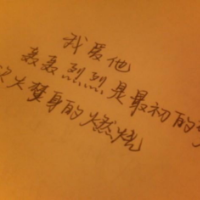 我爱他
轰轰烈烈是最初的
火焚身的燃烧